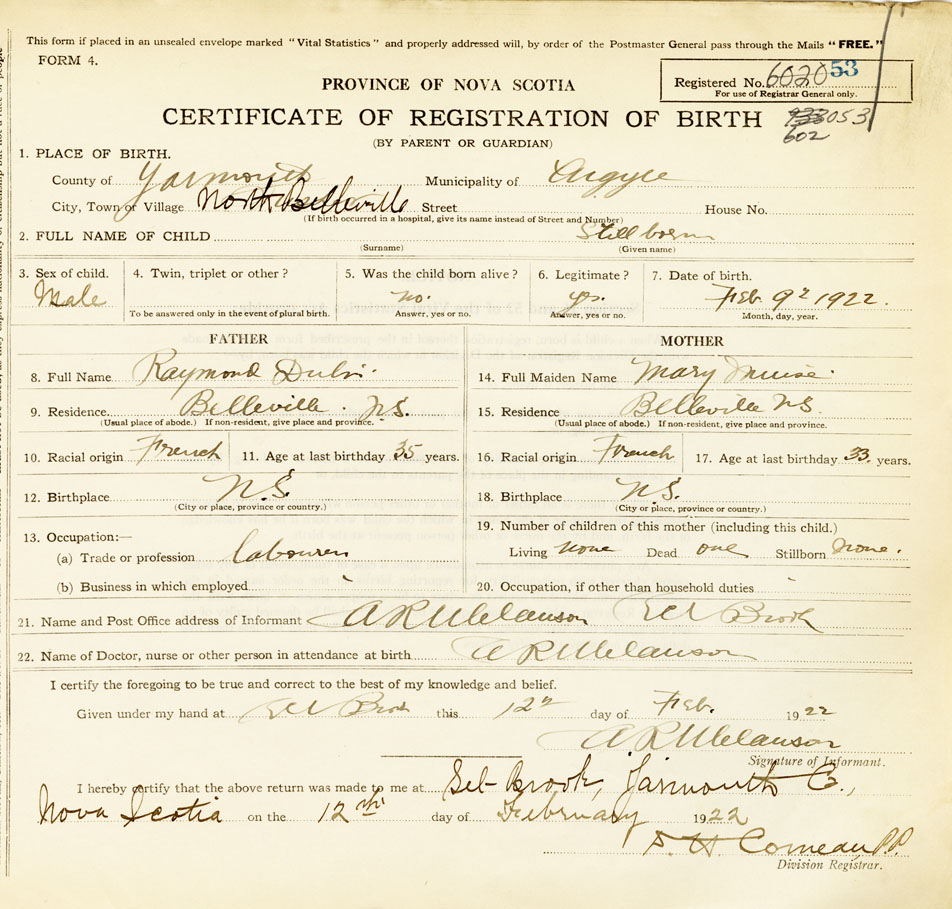 This form if placed in an unsealed envelope marked "Vital Statistics" and properly addressed will, by order of the Postmaster General pass through the Mails "FREE."
FORM 4.
Registered No. 6020 53
For use of Registrar General only.
PROVINCE OF NOVA SCOTIA
CERTIFICATE OF REGISTRATION OF BIRTH
053
602
(BY PARENT OR GUARDIAN)
1. PLACE OF BIRTH.
County of Yarmouth Municipality of Argyle
City, Town or Village North Belleville Street House No.
(If birth occurred in a hospital, give its name instead of Street and Number)
2. FULL NAME OF CHILD Stillborn
(Surname) (Given name)
3. Sex of child. 4. Twin, triplet or other? 5. Was the child born alive? 6. Legitimate? 7. Date of birth.
Male no. yes. Feb. 9th 1922.
To be answered only in the event of plural birth. Answer, yes or no. Answer, yes or no. Month, day, year.
FATHER MOTHER
8. Full Name Raymond 14. Full Maiden Name Mary Muise
9. Residence Belleville. N.S. 15. Residence Belleville N.S.
(Usual place of abode.) If non-resident, give place and province. (Usual place of abode.) If non-resident, give place and province.
10. Racial origin French 11. Age at last birthday 35 years. 16. Racial origin French 17. Age at last birthday 33 years.
12. Birthplace N.S. 18. Birthplace N.S.
(City or place, province or country.) (City or place, province or country.)
19. Number of children of this mother (including this child.)
13. Occupation:—
(a) Trade or profession labourer Living none Dead one Stillborn none.
(b) Business in which employed 20. Occupation, if other than household duties
21. Name and Post Office address of Informant A R Melanson Eel Brook
22. Name of Doctor, nurse or other person in attendance at birth A R Melanson
I certify the foregoing to be true and correct to the best of my knowledge and belief.
Given under my hand at Eel Brook this 12th day of Feb. 1922
A R Melanson
Signature of Informant.
I hereby certify that the above return was made to me at Eel-Brook, Yarmouth Co.,
Nova Scotia on the 12th day of February 1922
S. H. Comeau P.P.
Division Registrar.